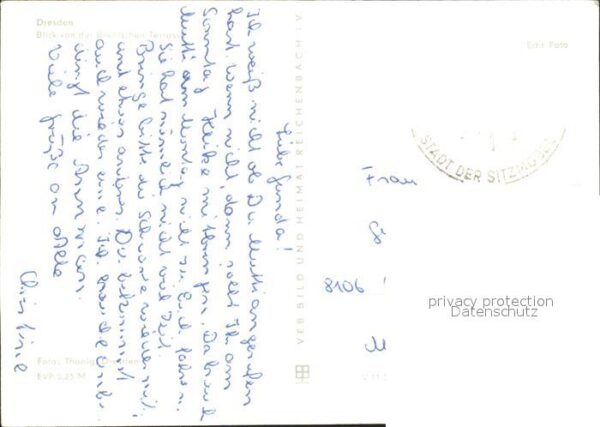 Dresden
Blick von der Brühlschen Terrasse
Echt Foto
Liebe Gunda!
Ich weiß nicht ob Du Mutti angerufen
hast. Wenn nicht, dann sollt Ihr am
Sonntag Heike mitbringen. Da braucht
Mutti am Montag nicht zu Euch fahren.
Sie hat nämlich nicht viel Zeit.
Bringe bitte die Schwone wieder mit
und etwas anderes. Du bekommst
auch wieder eine. Ich brauche unbe-
dingt die
Viele Grüße an alle
VEB BILD UND HEIMAT REICHENBACH I. V.
STADT DER SITZMÖBEL
Frau
G
8106
privacy protection
Datenschutz
Foto: Thonig, Dresden
EVP 0,25 M